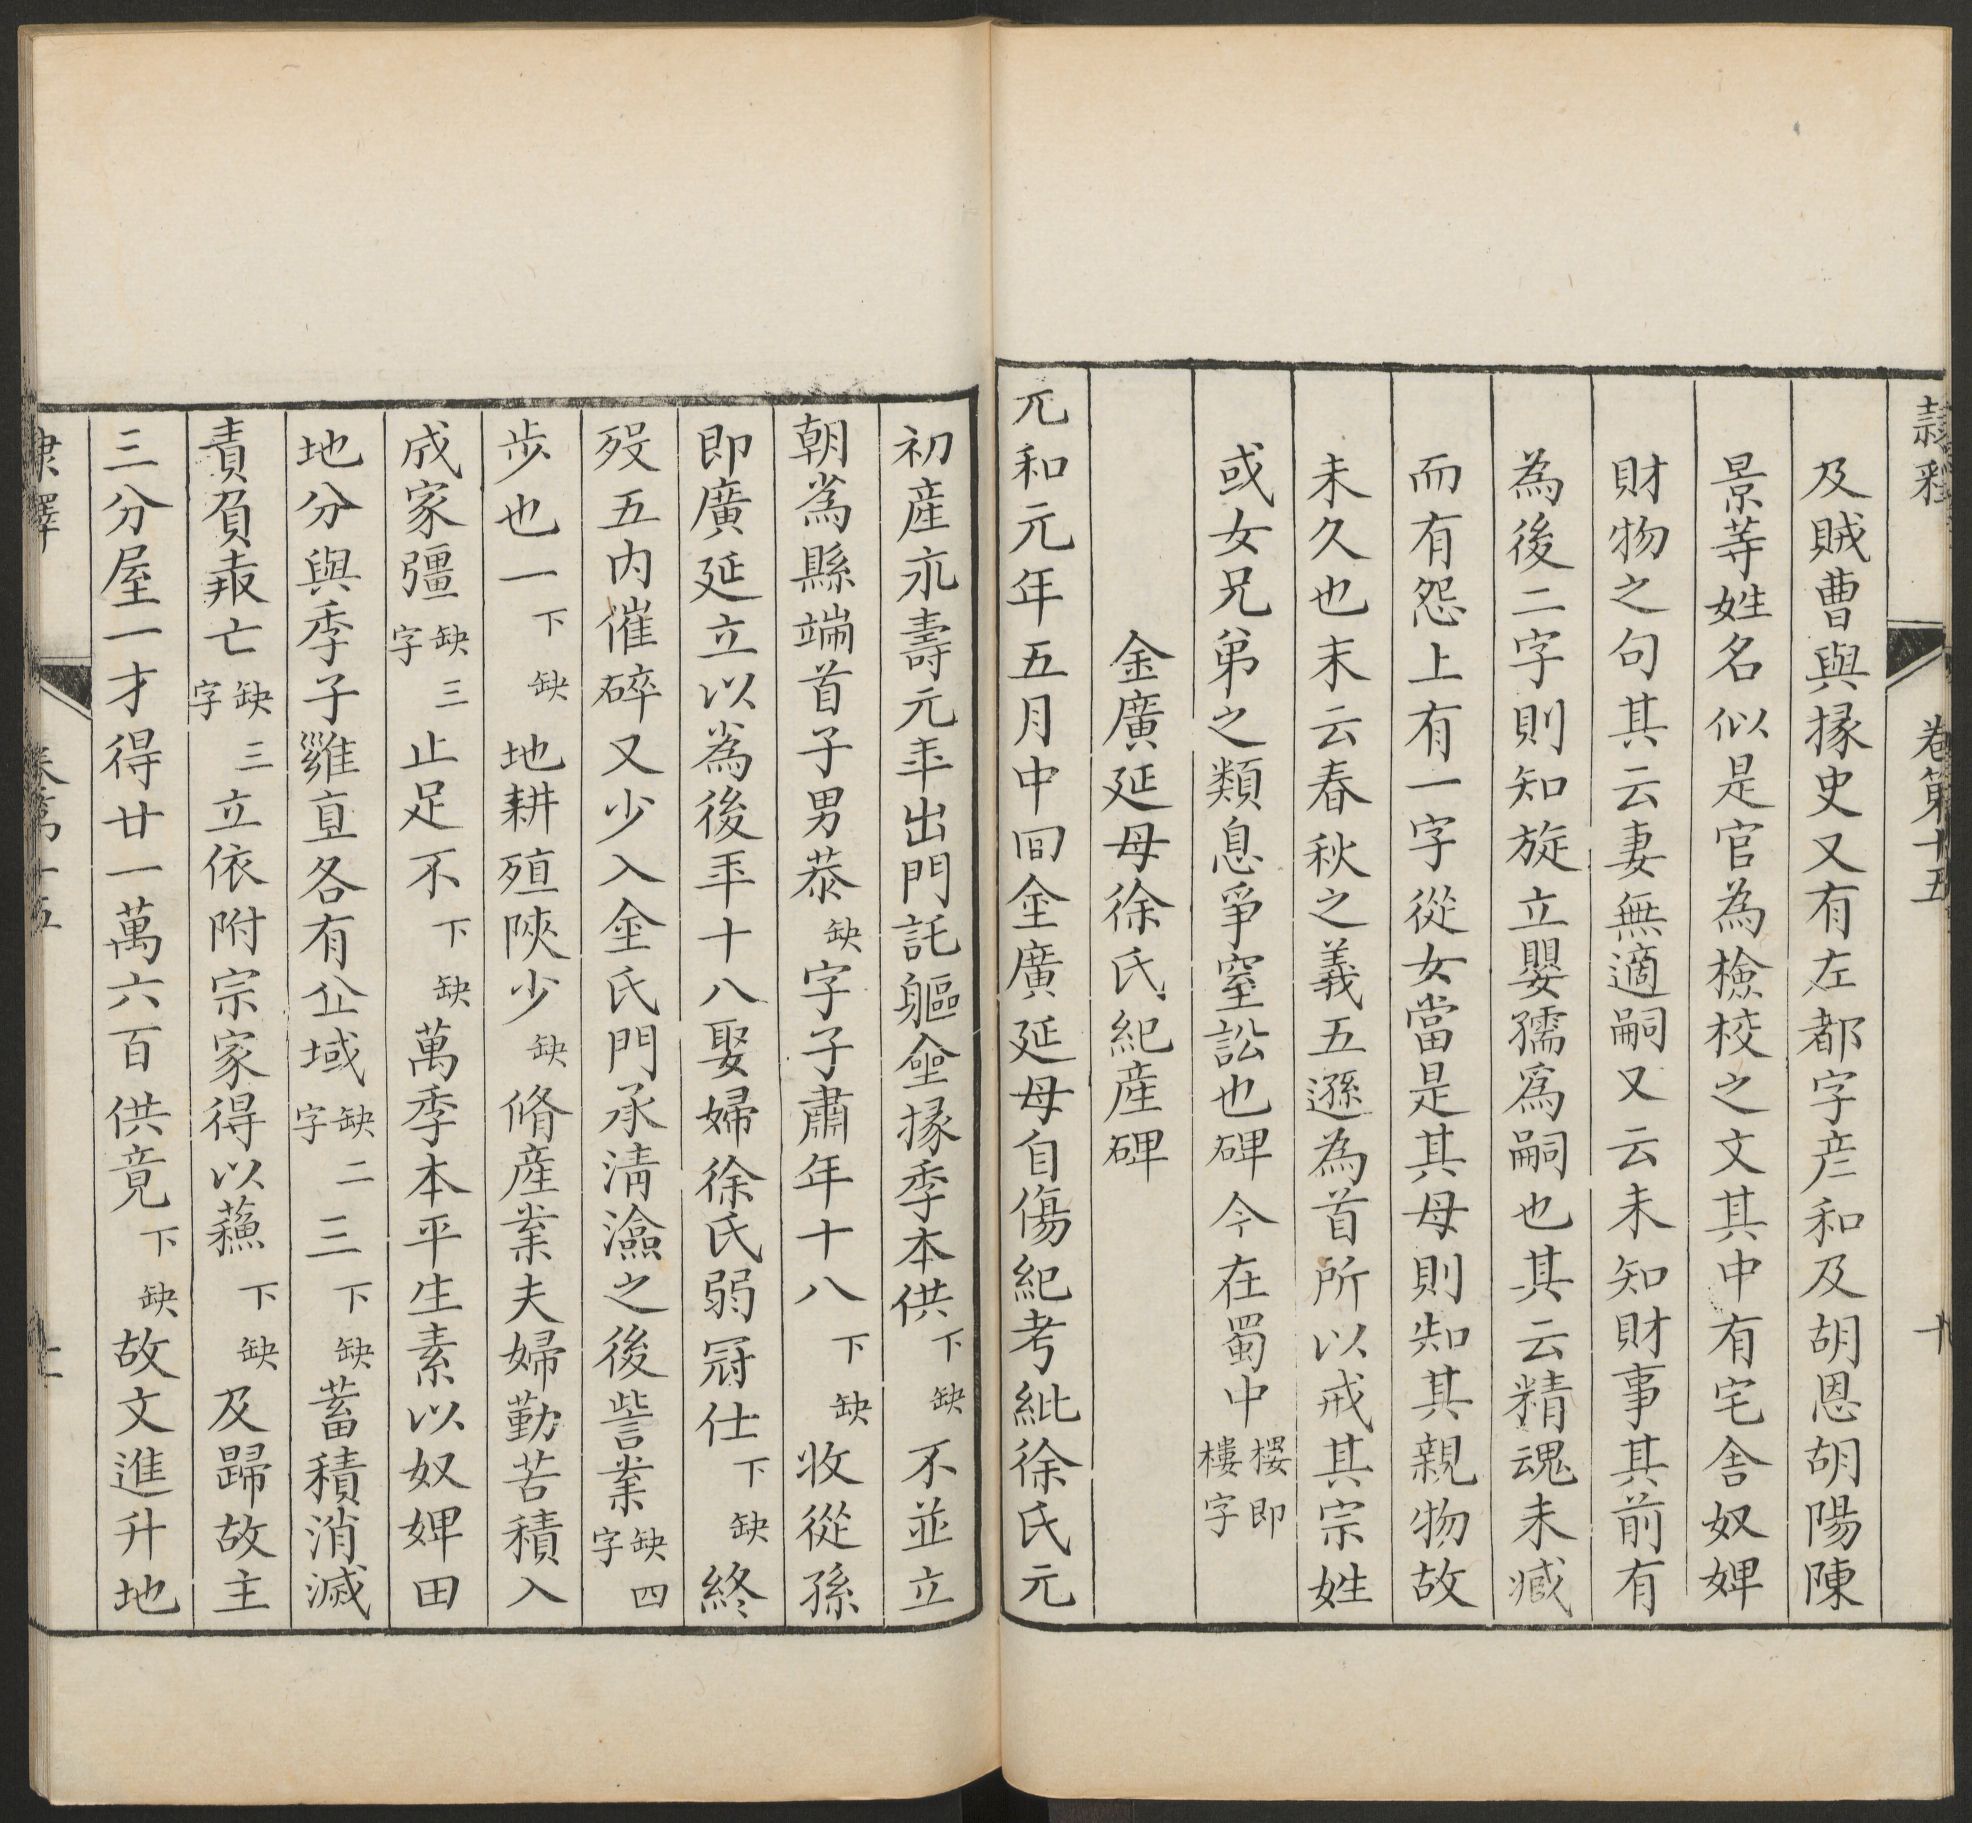 隷釋 卷第十五 十
及賊曹與掾史又有左都字彦和及胡恩胡陽陳
景等姓名似是官為檢校之文其中有宅舍奴婢
財物之句其云妻無適嗣又云未知財事其前有
為後二字則知旋立嬰孺爲嗣也其云精魂未臧
而有怨上有一字從女當是其母則知其親物故
未久也末云春秋之義五遜為首所以戒其宗姓
或女兄弟之類息爭窒訟也碑今在蜀中 樱即樓字
金廣延母徐氏紀産碑
元和元年五月中回金廣延母自傷紀考紕徐氏元
初産永壽元年出門託軀金掾季本供 下缺 不並立
朝爲縣端首子男恭 缺 字子肅年十八 下缺 收從孫
即廣延立以爲後年十八娶婦徐氏弱冠仕 下缺 終
歿五内催碎又少入金氏門承清澰之後訾業 缺四字
步也一 下缺 地耕殖陜少 缺 脩産業夫婦勤苦積入
成家彊 缺三字 止足不 下缺 萬季本平生素以奴婢田
地分與季子雝直各有丘域 缺二字 三 下缺 蓄積消滅
責負報亡 缺三字 立依附宗家得以蘓 下缺 及歸故主
三分屋一才得廿一萬六百供竟 下缺 故文進升地